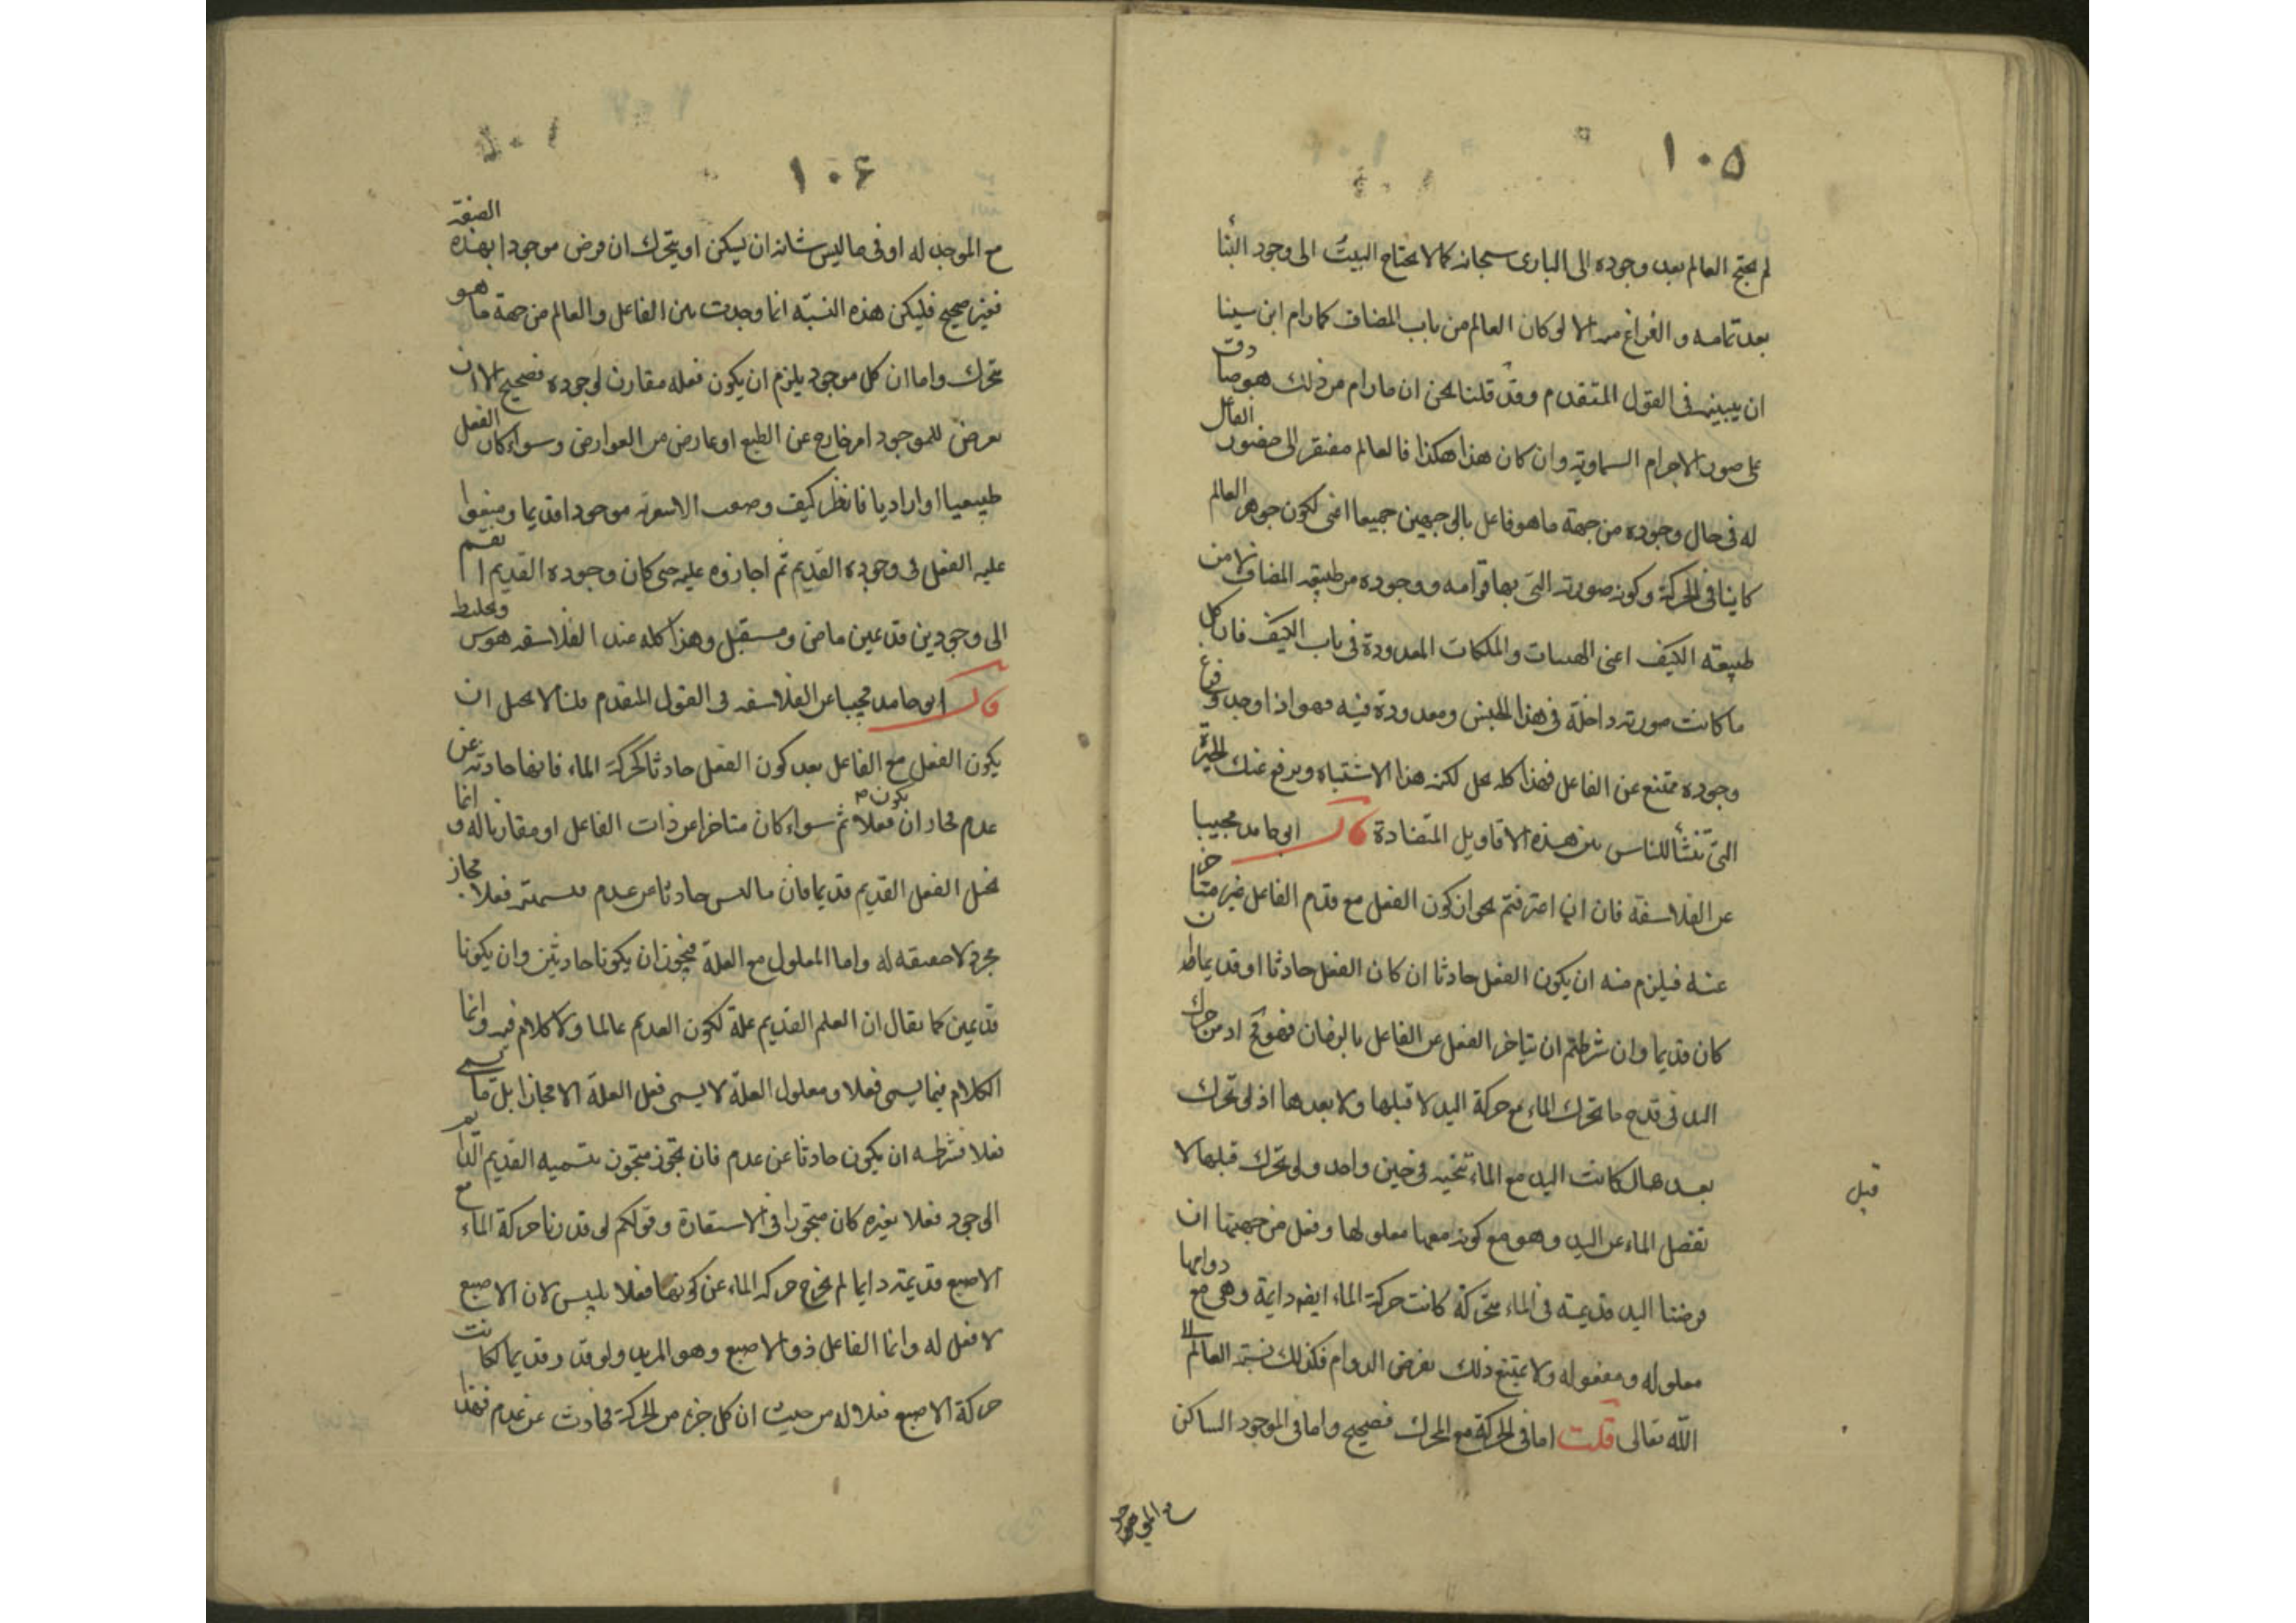 ١٠٥
لم يحتج العالم بعد وجوده الى البارى سبحانه كما لا يحتاج البيت الى وجود البنّا
بعد تمامه و الفراغ منه الا لو كان العالم من باب المضاف كما رام ابن سينا
ان يبينه فى القول المتقدم وقد قلنا نحن ان ما رام من ذلك هو صادق
على صور الاجرام السماوية وان كان هذا هكذا فالعالم مفتقر الى حضور الفاعل
له فى حال وجوده من جهة ما هو فاعل بالوجهين جميعا اعنى لكون جوهر العالم
كاينا فى الحركة وكون صورته التى بها قوامه ووجوده من طبيعه المضاف لا من
طبيعته الكيف اعنى الهيات والملكات المعدودة فى باب الكيف فان كل
ما كانت صورته داخلة فى هذا الجنس ومعدودة فيه فهو اذا وجد وفرغ
وجوده ممتنع عن الفاعل فهذا كله يحل لك هذا الاشتباه ويرفع عنك الحيرة
التى تنشأ للناس من هذه الاقاويل المتضادة قال ابو حامد مجيبا
عن الفلاسفة فان اعترفتم بجواز كون الفعل مع قدم الفاعل غير متاخر
عنه فيلزم منه ان يكون الفعل حادثا ان كان الفعل حادثا او قديما ان
كان قديما وان شرطتم ان يتاخر الفعل عن الفاعل بالزمان فهو مح اذ من حرك
اليد فى قدح ما تحرك الماء مع حركة اليد لا قبلها ولا بعدها اذ لو تحرك
بعدها لكانت اليد مع الماء تنحيه فى حين واحد ولو تحرك قبلها لا
قبل
نفصل الماء عن اليد وهو مع كونه معها معلولها وفعل من جهتها ان
فرضنا اليد قديمة فى الماء متحركة كانت حركة الماء ايضا دايمة وهى مع دوامها
معلوله ومفعوله ولا يمتنع ذلك بفرض الدوام فكذلك نسبة العالم الى
الله تعالى قلت اما فى الحركة مع المحرك فصحيح واما فى الموجود الساكن
مع الموجد
١٠٦
مع الموجد له او فى ما ليس شانه ان يسكن او يتحرك ان فرض موجودا بهذه الصفة
فغير صحيح فليكن هذه النسبة انما وجدت بين الفاعل والعالم من جهة ما هو
متحرك واما ان كل موجود يلزم ان يكون فعله مقارن لوجوده فصحيح الا ان
يعرض للموجود امر خارج عن الطبع او عارض من العوارض وسواء كان الفعل
طبيعيا او اراديا فانظر كيف وضعت الاشعرية موجودا قديما ومنعوا
عليه الفعل فى وجوده القديم ثم اجازوه عليه حتى كان وجوده القديم انقسم
الى وجودين قديمين ماض ومستقبل وهذا كله عند الفلاسفه هوس وتخليط
قال ابو حامد مجيبا عن الفلاسفه فى القول المتقدم قلنا لا يحمل ان
يكون الفعل مع الفاعل بعد كون الفعل حادثا كحركة الماء فانها حادثة عن
عدم فجاز ان يكون فعلا ثم سواء كان متاخرا عن ذات الفاعل او مقارنا له وانما
نحيل الفعل القديم قديما فان ما ليس حادثا عن عدم فتسميته فعلا مجاز
مجرد لا حقيقه له واما المعلول مع العلة فيجوز ان يكونا حادثين وان يكونا
قديمين كما يقال ان العلم القديم علة لكون القديم عالما ولا كلام فيه وانما
الكلام فيما يسمى فعلا ومعلول العلة لا يسمى فعل العلة الا مجازا بل ما يسمى
فعلا فشرطه ان يكون حادثا عن عدم فان تجوز متجوز بتسميه القديم الدايم
الوجود فعلا لغيره كان متجوزا فى الاستعارة وقولكم لو قدرنا حركة الماء مع
الاصبع قديمة دايما لم يخرج حركة الماء عن كونها فعلا تلبيس لان الاصبع
لا فعل له وانما الفاعل ذو الاصبع وهو المريد ولو قدر قديما لكانت
حركة الاصبع فعلا له من حيث ان كل جزء من الحركة فحادث عن عدم فبهذا